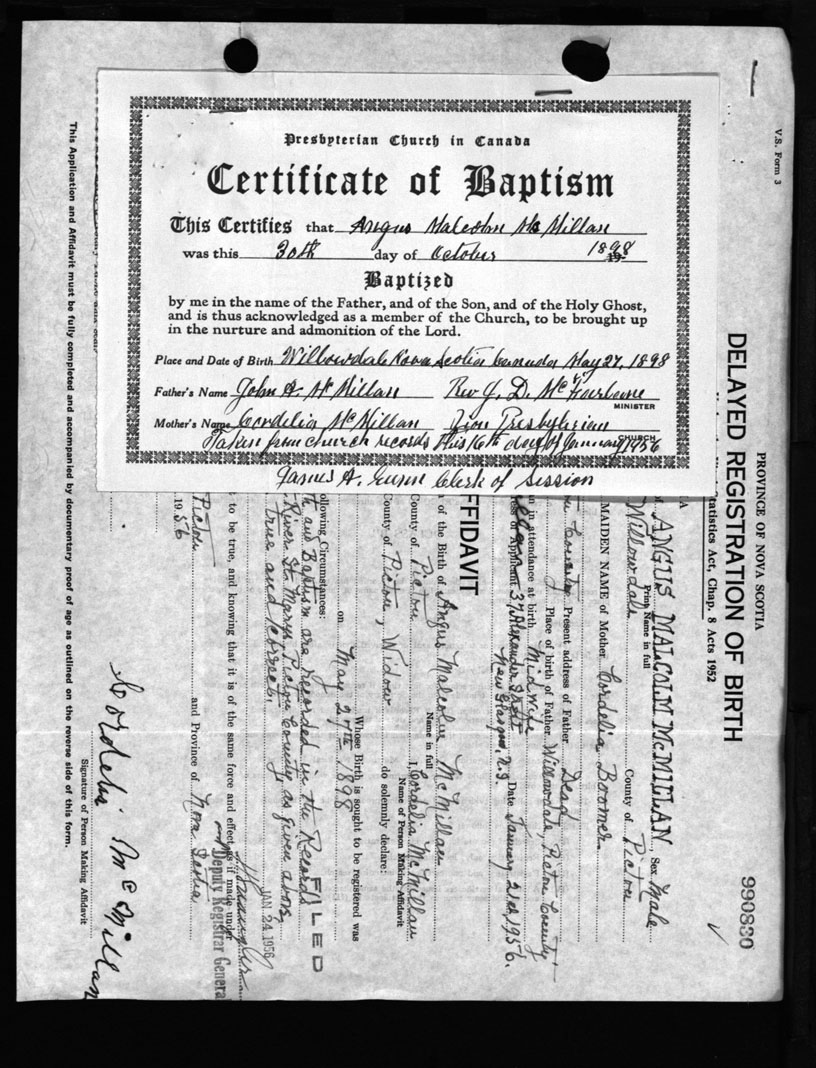 Presbyterian Church in Canada
Certificate of Baptism
This Certifies that Angus Malcolm McMillan
was this 30th day of October 1898
Baptized
by me in the name of the Father, and of the Son, and of the Holy Ghost,
and is thus acknowledged as a member of the Church, to be brought up
in the nurture and admonition of the Lord.
Place and Date of Birth Willowdale Nova Scotia Canada May 27, 1898
Father's Name John A. McMillan Rev J. D.
MINISTER
Mother's Name Cordelia McMillan Zion Presbyterian
CHURCH
Taken from church records this 16th day of January 1956
James A. Gunn Clerk of Session
V.S. Form 3
990830
PROVINCE OF NOVA SCOTIA
DELAYED REGISTRATION OF BIRTH
Statistics Act, Chap. 8 Acts 1952
ANGUS MALCOLM McMILLAN Sex Male
Print Name in full
Willowdale County of Pictou
MAIDEN NAME of Mother Cordelia Boomer
County Present address of Father Dead
Place of birth of Father Willowdale, Pictou County
in attendance at birth Midwife
of Applicant 37 Alexander Street
New Glasgow, N.S. Date January 21st 1956.
FFIDAVIT
of the Birth of Angus Malcolm McMillan
Name in full
County of Pictou I, Cordelia McMillan
Name of Person Making Affidavit
County of Pictou, Widow do solemnly declare:
Whose Birth is sought to be registered was
on May 27th 1898
ollowing Circumstances:
and Baptism are recorded in the Records
River St. Marys, Pictou County, as given above,
true and correct.
FILED
JAN 24 1956
Deputy Registrar General
to be true, and knowing that it is of the same force and effect as if made under
Pictou and Province of Nova Scotia
1956
Cordelia McMillan
Signature of Person Making Affidavit
This Application and Affidavit must be fully completed and accompanied by documentary proof of age as outlined on the reverse side of this form.